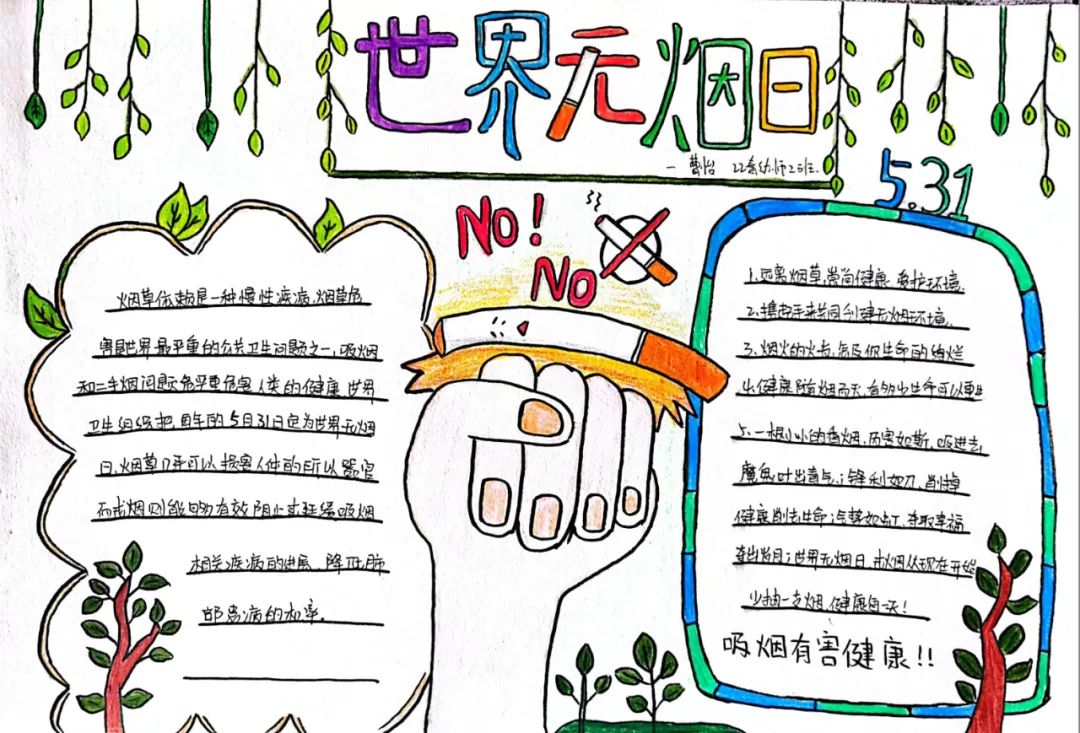 世界无烟日
一曹怡 22春幼师2班.
5.31
No!
No
烟草依赖是一种慢性疾病,烟草危
害是世界最严重的公共卫生问题之一,吸烟
和二手烟问题危严重危害人类的健康.世界
卫生组织把每年的5月31日定为世界无烟
日,烟草几乎可以损害人体的所以器官
而戒烟则能够有效阻止或延缓吸烟
相关疾病的进展、降低肺
部患病的概率.
1.远离烟草,崇尚健康,爱护环境.
2.携起手来共同创建无烟环境.
3.烟火的火与,危及你生命的绚烂
4.健康随烟而灭,有多少生命可以重
5.一根小小的香烟,厉害如斯,吸进去
魔鬼吐出毒气;锋利如刀,削掉
健康削去生命;气势如,夺取幸福
牵出岁月;世界无烟日,戒烟从现在开始
少抽一支烟,健康每一天!
吸烟有害健康!!